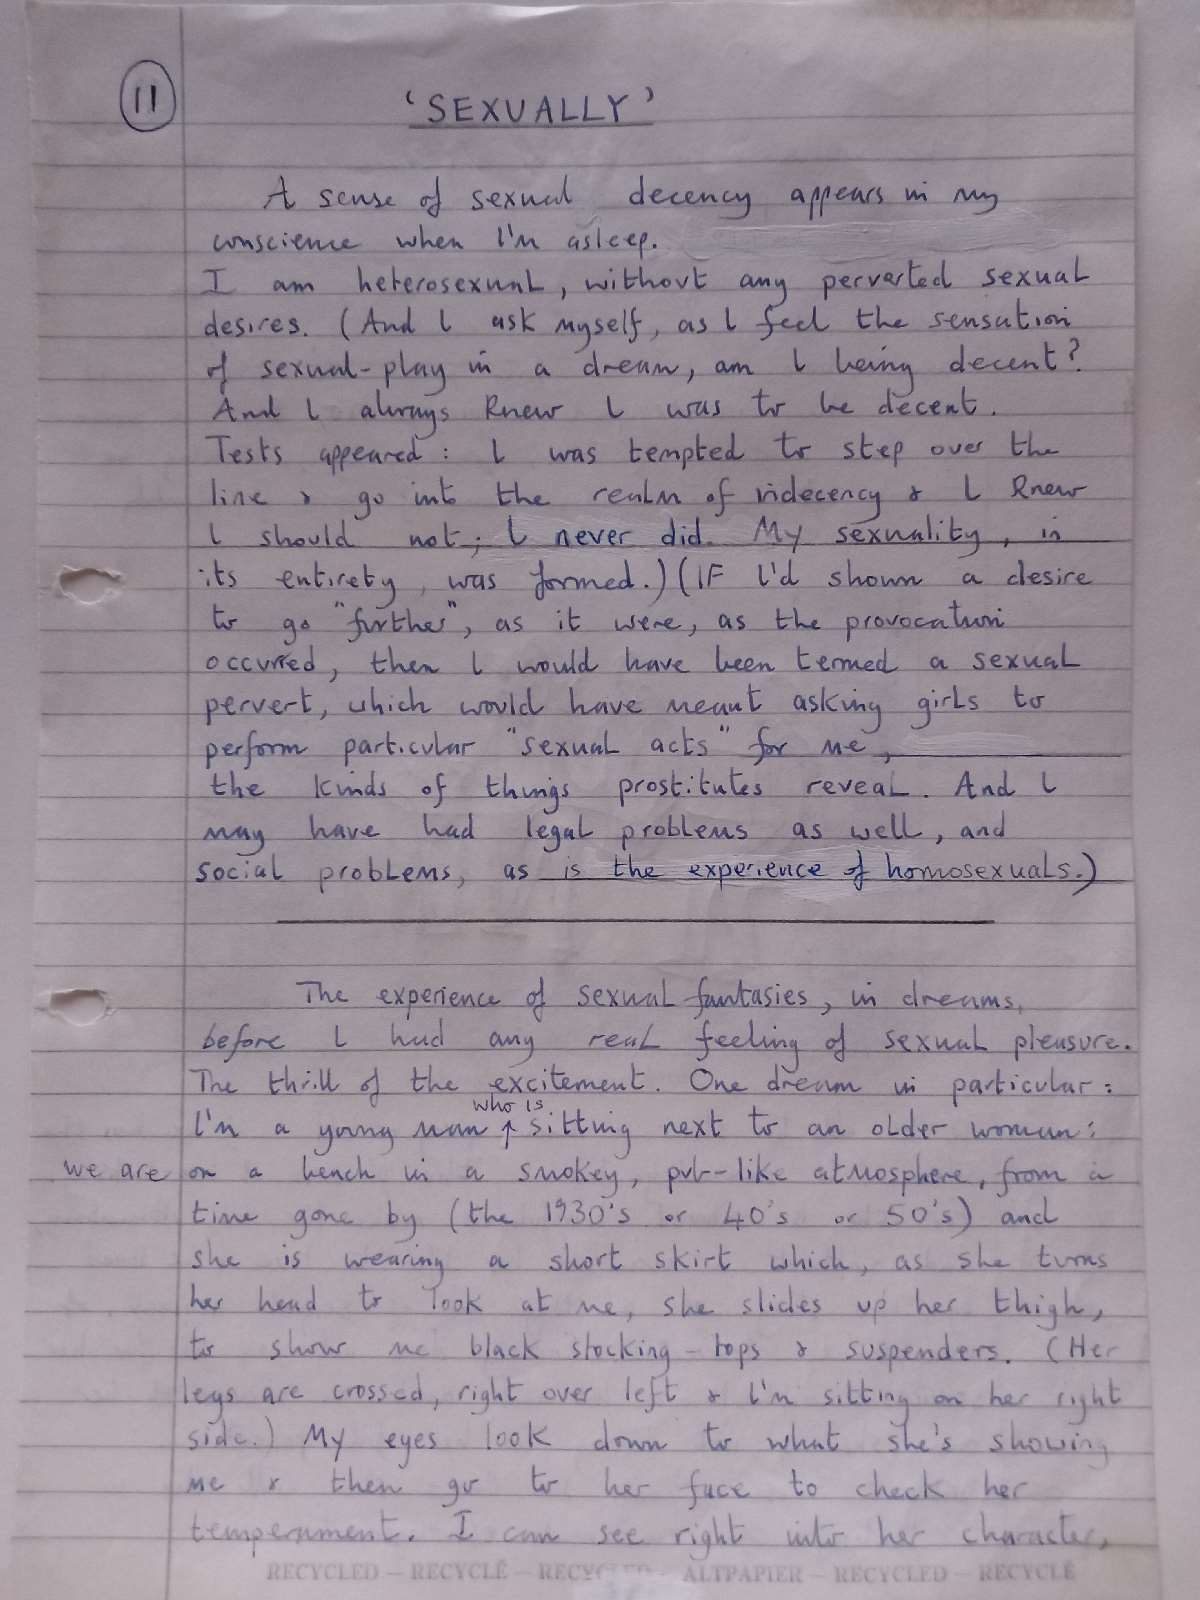 11
'SEXUALLY'
A sense of sexual decency appears in my
conscience when I'm asleep.
I am heterosexual, without any perverted sexual
desires. (And I ask myself, as I feel the sensation
of sexual-play in a dream, am I being decent?
And I always knew I was to be decent.
Tests appeared: I was tempted to step over the
line & go into the realm of indecency & I knew
I should not; I never did. My sexuality, in
its entirety, was formed.) (IF I'd shown a desire
to go "further", as it were, as the provocation
occurred, then I would have been termed a sexual
pervert, which would have meant asking girls to
perform particular "sexual acts" for me,
the kinds of things prostitutes reveal. And I
may have had legal problems as well, and
social problems, as is the experience of homosexuals.)
The experience of sexual fantasies, in dreams,
before I had any real feeling of sexual pleasure.
The thrill of the excitement. One dream in particular:
who is
I'm a young man ↑ sitting next to an older woman:
we are on a bench in a smokey, pub-like atmosphere, from a
time gone by (the 1930's or 40's or 50's) and
she is wearing a short skirt which, as she turns
her head to look at me, she slides up her thigh,
to show me black stocking-tops & suspenders. (Her
legs are crossed, right over left & I'm sitting on her right
side.) My eyes look down to what she's showing
me & then go to her face to check her
temperament. I can see right into her character,
RECYCLED – RECYCLÉ – RECYCLED – ALTPAPIER – RECYCLED – RECYCLÉ